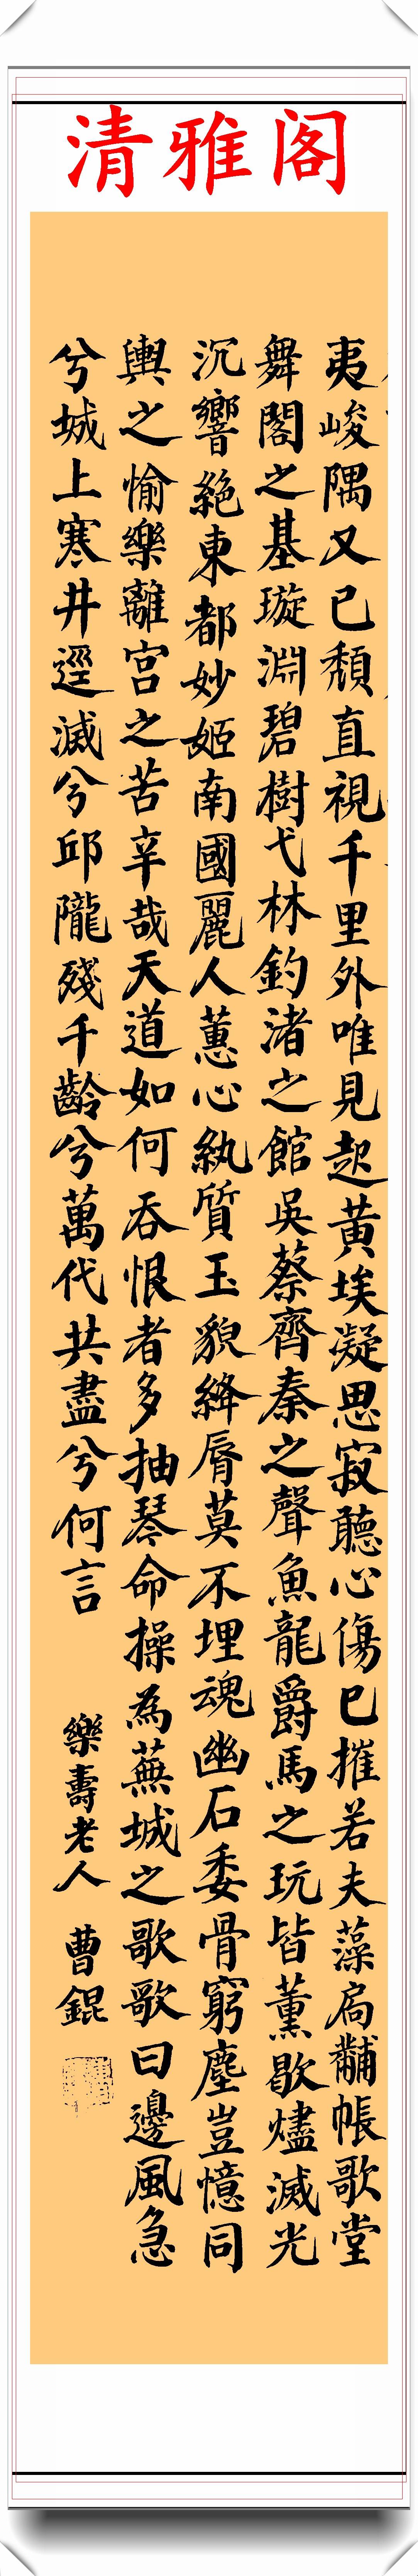 清雅阁
夷峻隅又已頹直視千里外唯見起黃埃凝思寂聽心傷已摧若夫藻扃黼帳歌堂
舞閣之基璇淵碧樹弋林釣渚之館吳蔡齊秦之聲魚龍爵馬之玩皆薰歇燼滅光
沉響絕東都妙姬南國麗人蕙心紈質玉貌絳脣莫不埋魂幽石委骨窮塵豈憶同
輿之愉樂離宮之苦辛哉天道如何吞恨者多抽琴命操為蕪城之歌歌曰邊風急
兮城上寒井逕滅兮邱隴殘千齡兮萬代共盡兮何言
樂壽老人 曹錕